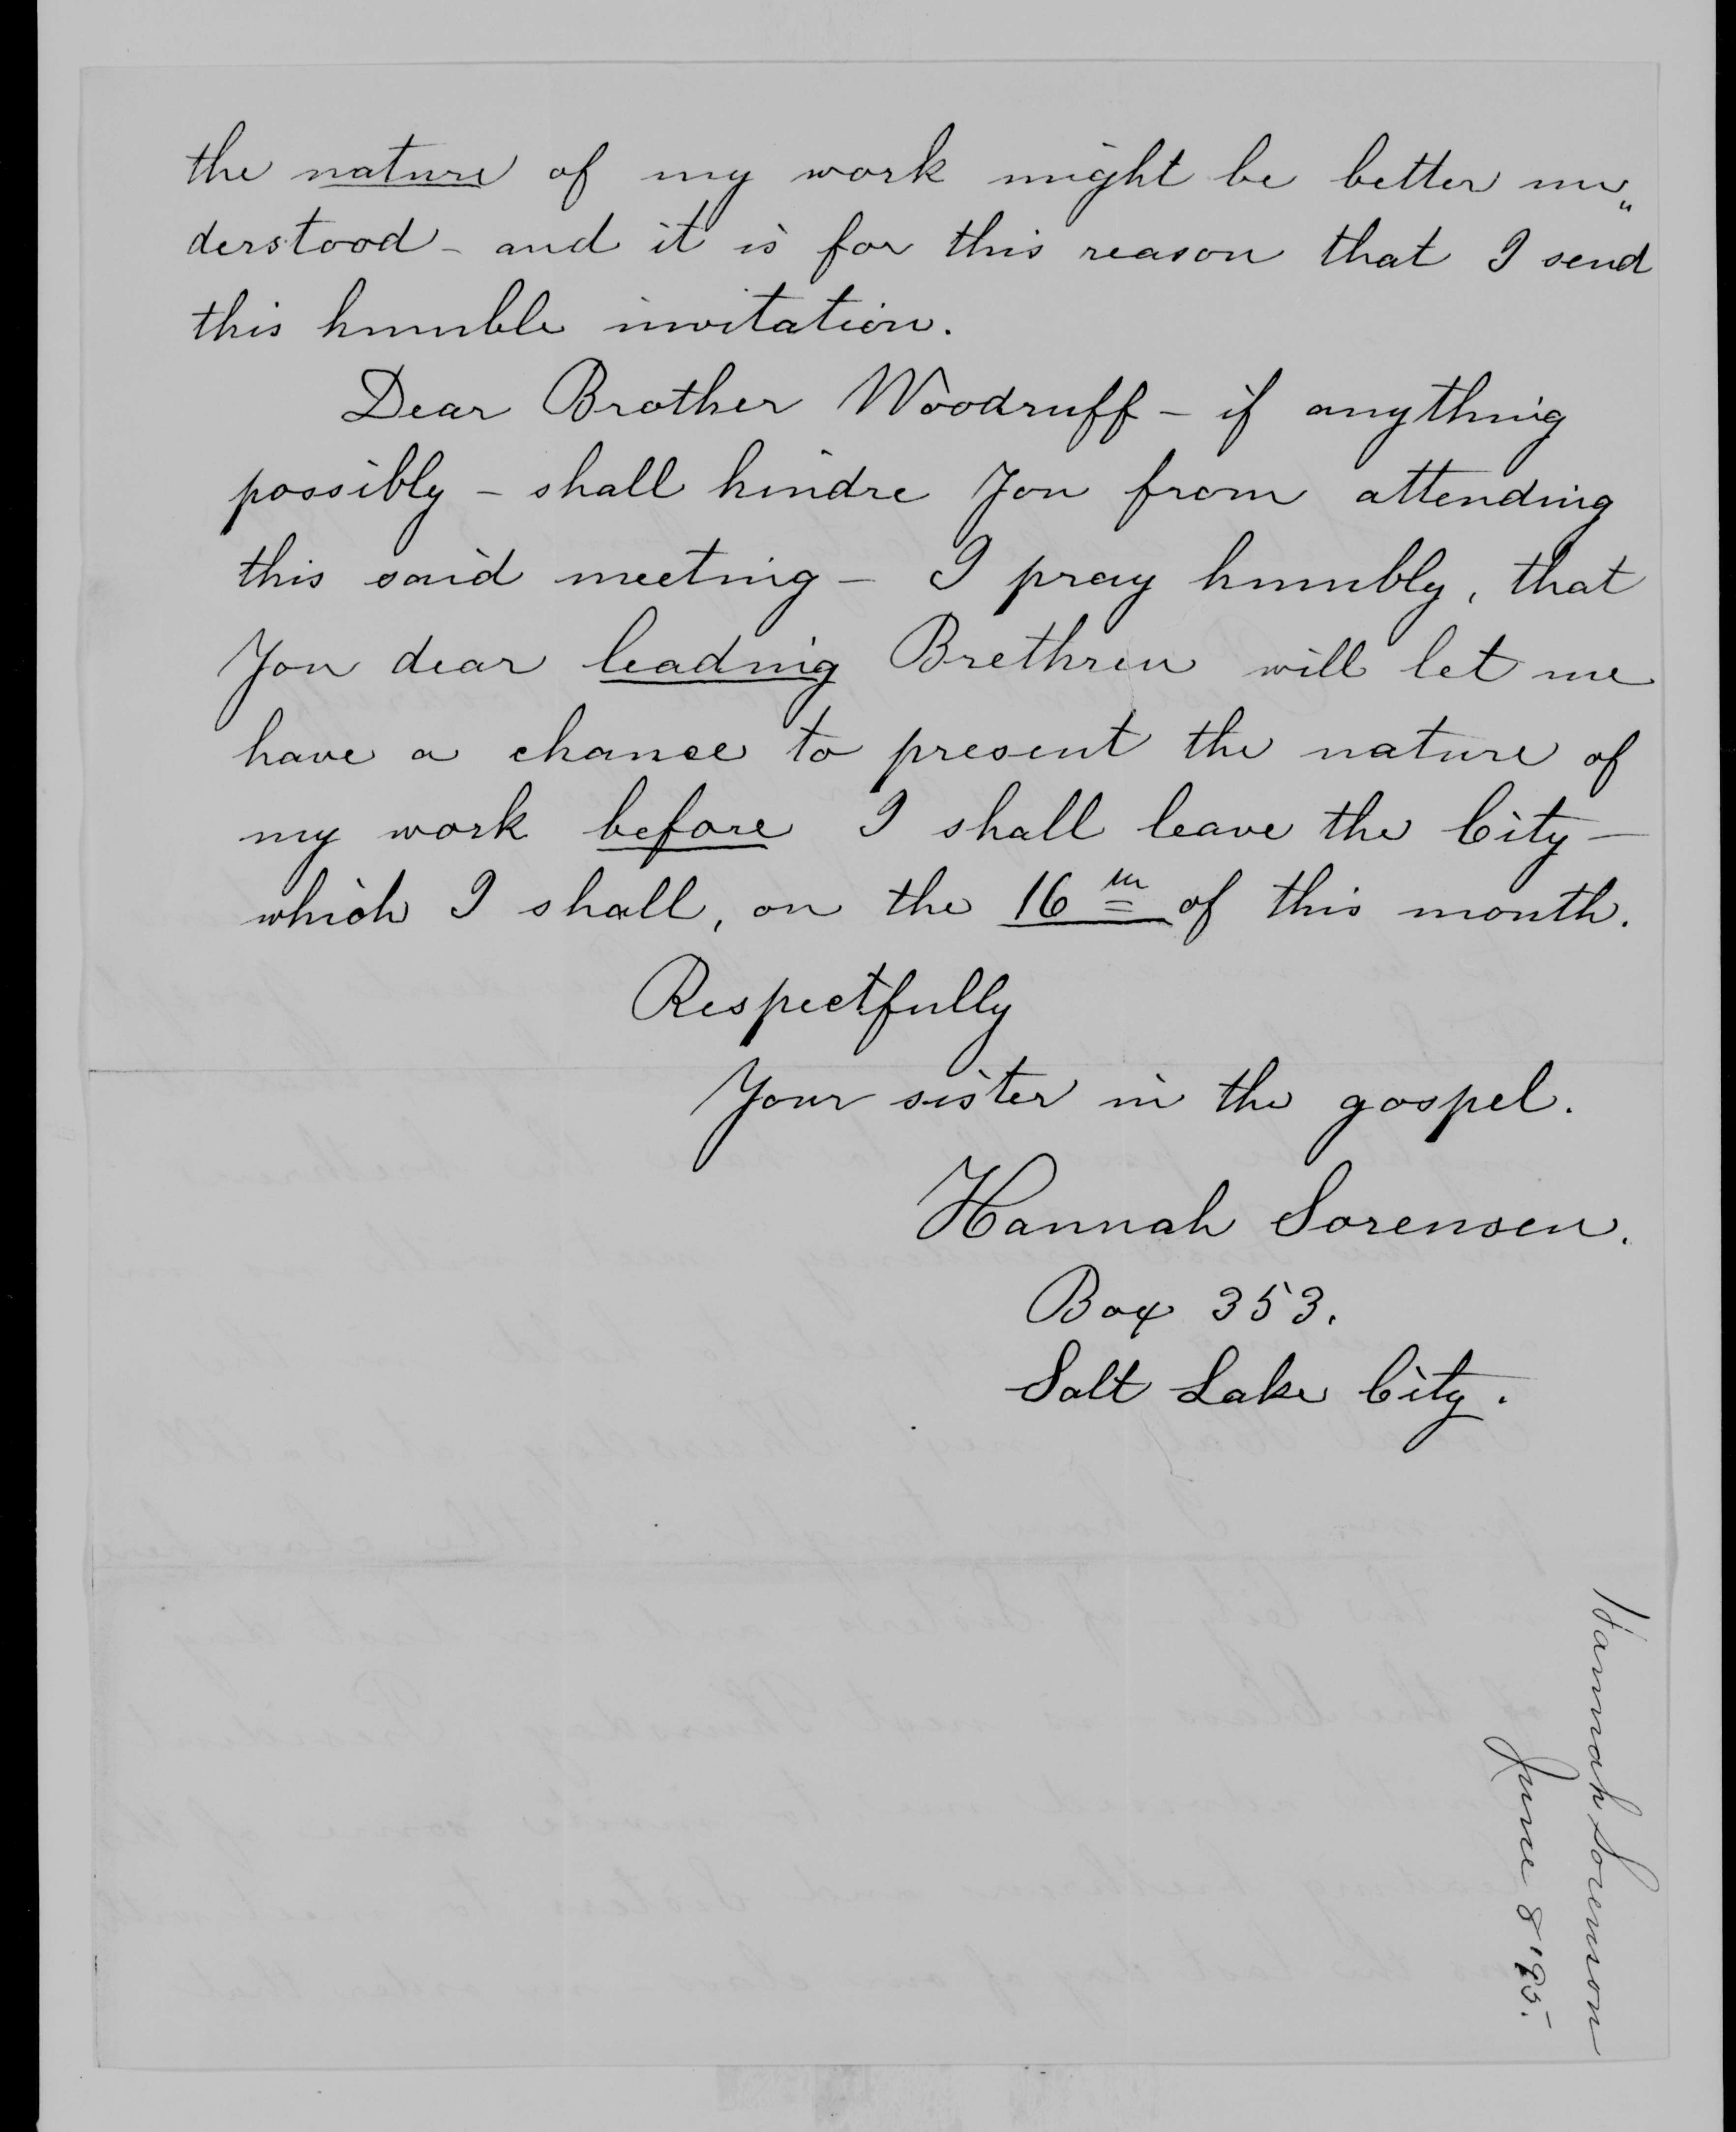 the nature of my work might be better un„
derstood - and it is for this reason that I send
this humble invitation.
Dear Brother Woodruff - if anything
possibly - shall hindre You from attending
this said meeting - I pray humbly, that
You dear leading Brethren will let me
have a chance to present the nature of
my work before I shall leave the City -
which I shall, on the 16th of this month.
Respectfully
Your sister in the gospel.
Hannah Sorensen.
Box 353.
Salt Lake City.
Hannah Sorenson
June 8 '95.